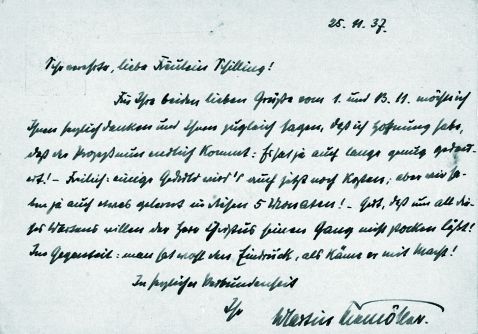 25. 11. 37.
Sehr verehrte, liebe Fräulein Schilling!
Für Ihre beiden lieben Grüße vom 1. und 13. 11. möchte ich
Ihnen herzlich danken und Ihnen zugleich sagen, daß ich Hoffnung habe,
daß der Prozeß nun endlich kommt: Er hat ja auch lange genug gedau-
ert! – Freilich: einige Geduld wird's auch jetzt noch kosten; aber wir ha-
ben ja auch etwas gelernt in diesen 5 Monaten! – Gut, daß um all die-
ses Wartens willen der Herr Christus seinen Gang nicht stocken läßt!
Im Gegenteil: man hat wohl den Eindruck, als käme er mit Macht!
In herzlicher Verbundenheit
Ihr Martin Niemöller.